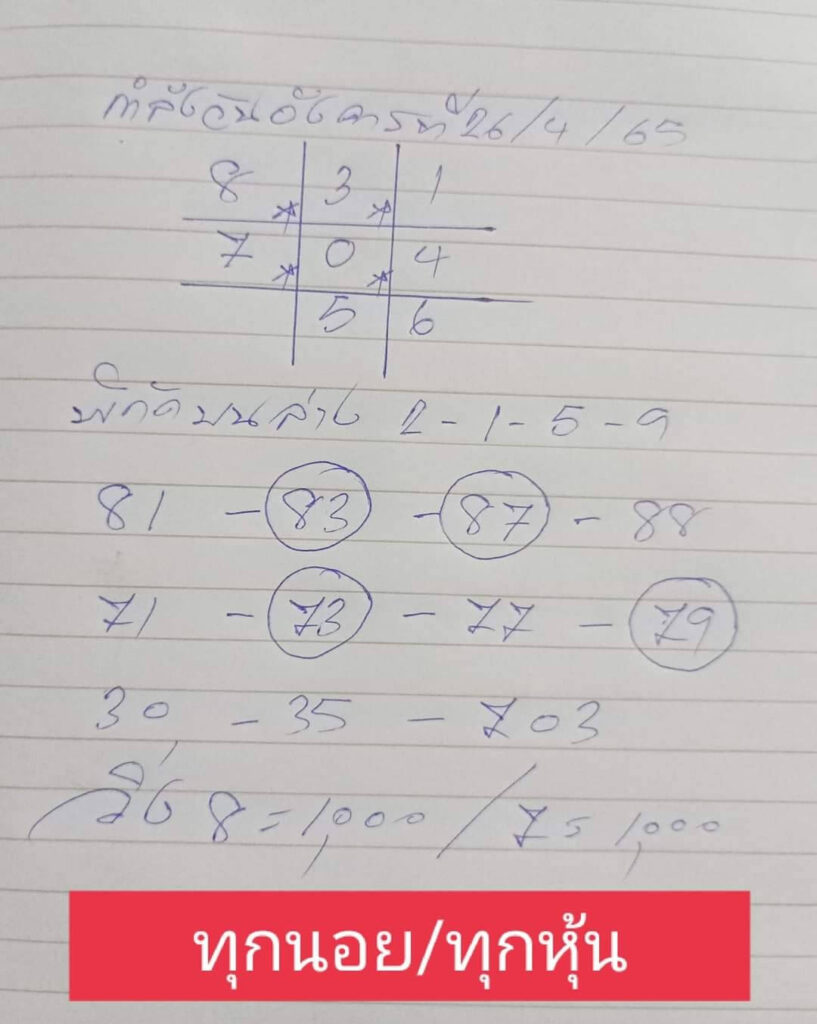 กำลังวันอังคารที่ 26/4/65
8 3 1
7 0 4
5 6
พิกัดบนล่าง 2-1-5-9
81 - 83 - 87 - 88
71 - 73 - 77 - 79
30 - 35 - 703
วิ่ง 8=1,000/7=1,000
ทุกนอย/ทุกหุ้น